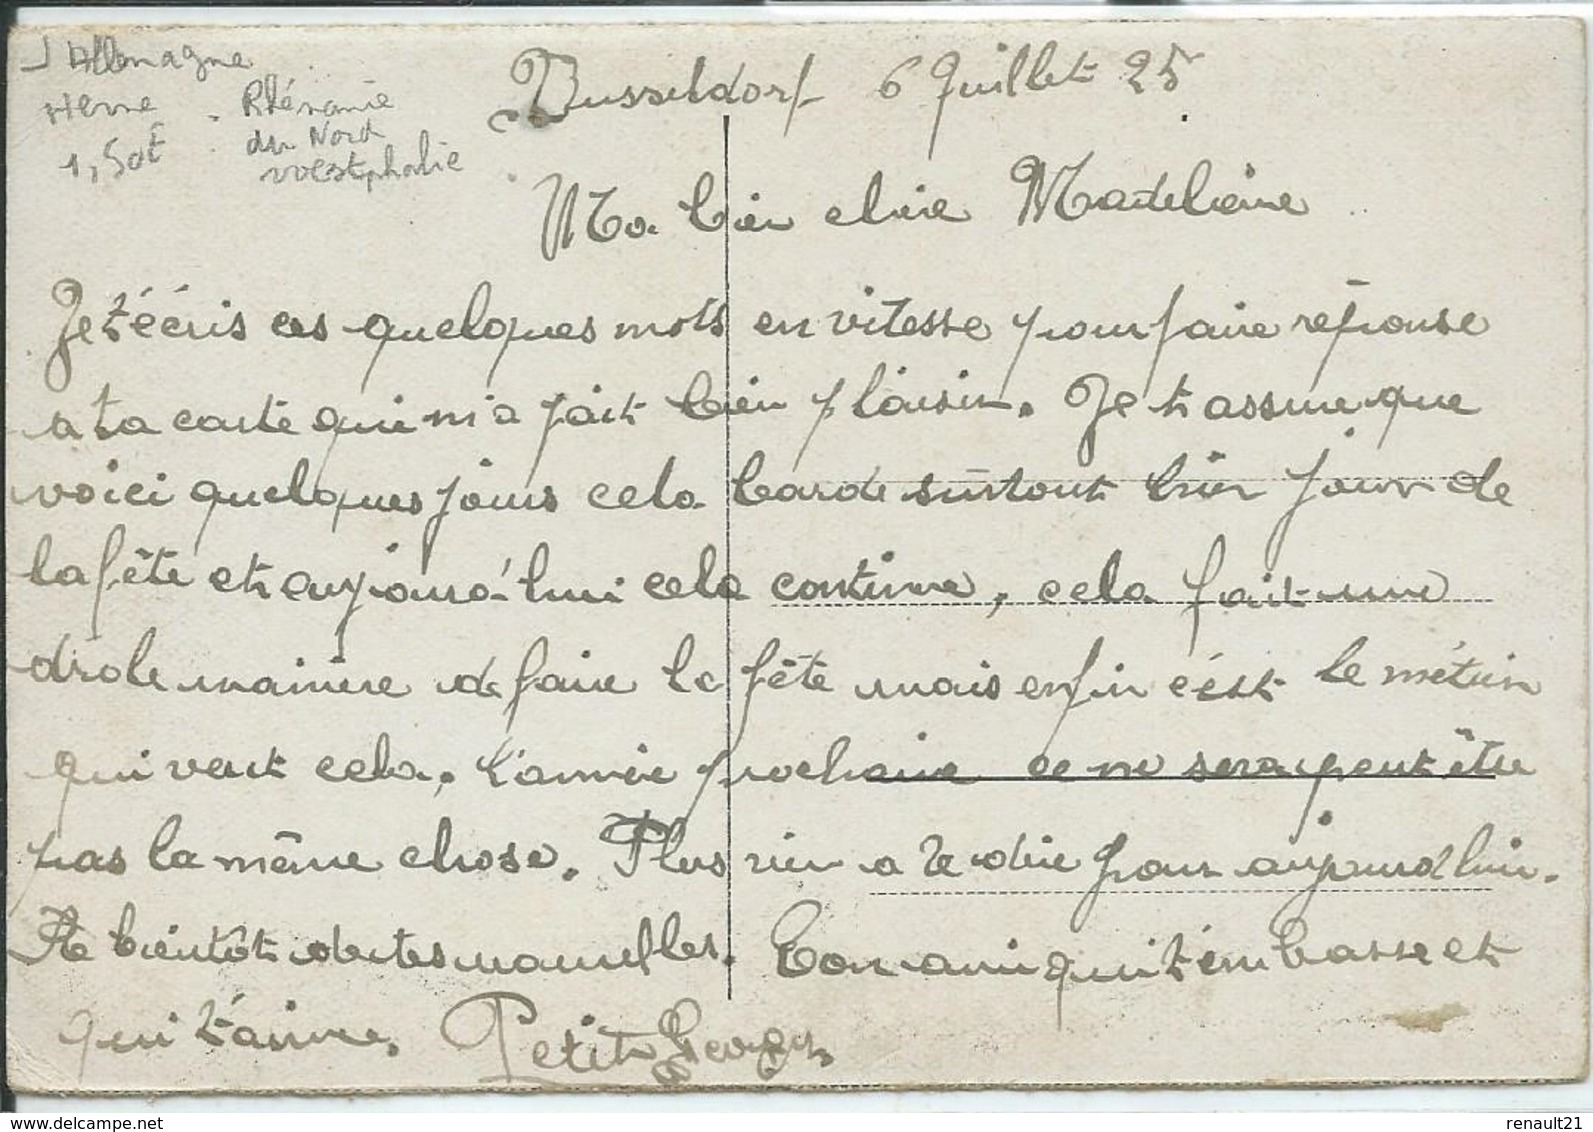 Allemagne
Herne . Rhénanie
1,50€ . du Nord
Westphalie
Dusseldorf 6 Juillet 25
Ma bien chère Madeleine
Je t'écris ces quelques mots en vitesse pour faire réponse
a ta carte qui m'a fait bien plaisir. Je t'assure que
voici quelques jours cela barde surtout hier jour de
la fête et aujourd'hui cela continue, cela fait une
drole manière de faire la fête mais enfin c'est le métier
qui veut cela. L'année prochaine ce ne sera peut être
pas la même chose. Plus rien a te dire pour aujourd'hui.
A bientôt de tes nouvelles. Ton ami qui t'embrasse et
qui t'aime. Petit Georges
www.delcampe.net renault21